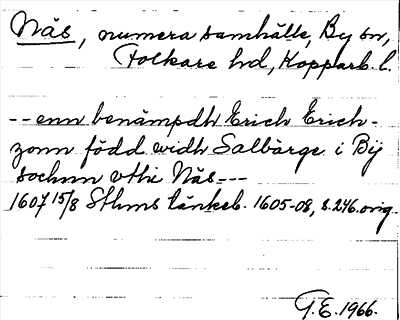 Näs, numera samhälle, By sn,
Folkare hd, Kopparb. l.
-- enn benämpdh Erich Erich-
zonn född widh Salbärge i Bÿ
sochnn vthi Näs---
1607 15/8 Sthms tänkeb. 1605-08, s. 246. orig.
G.E. 1966.